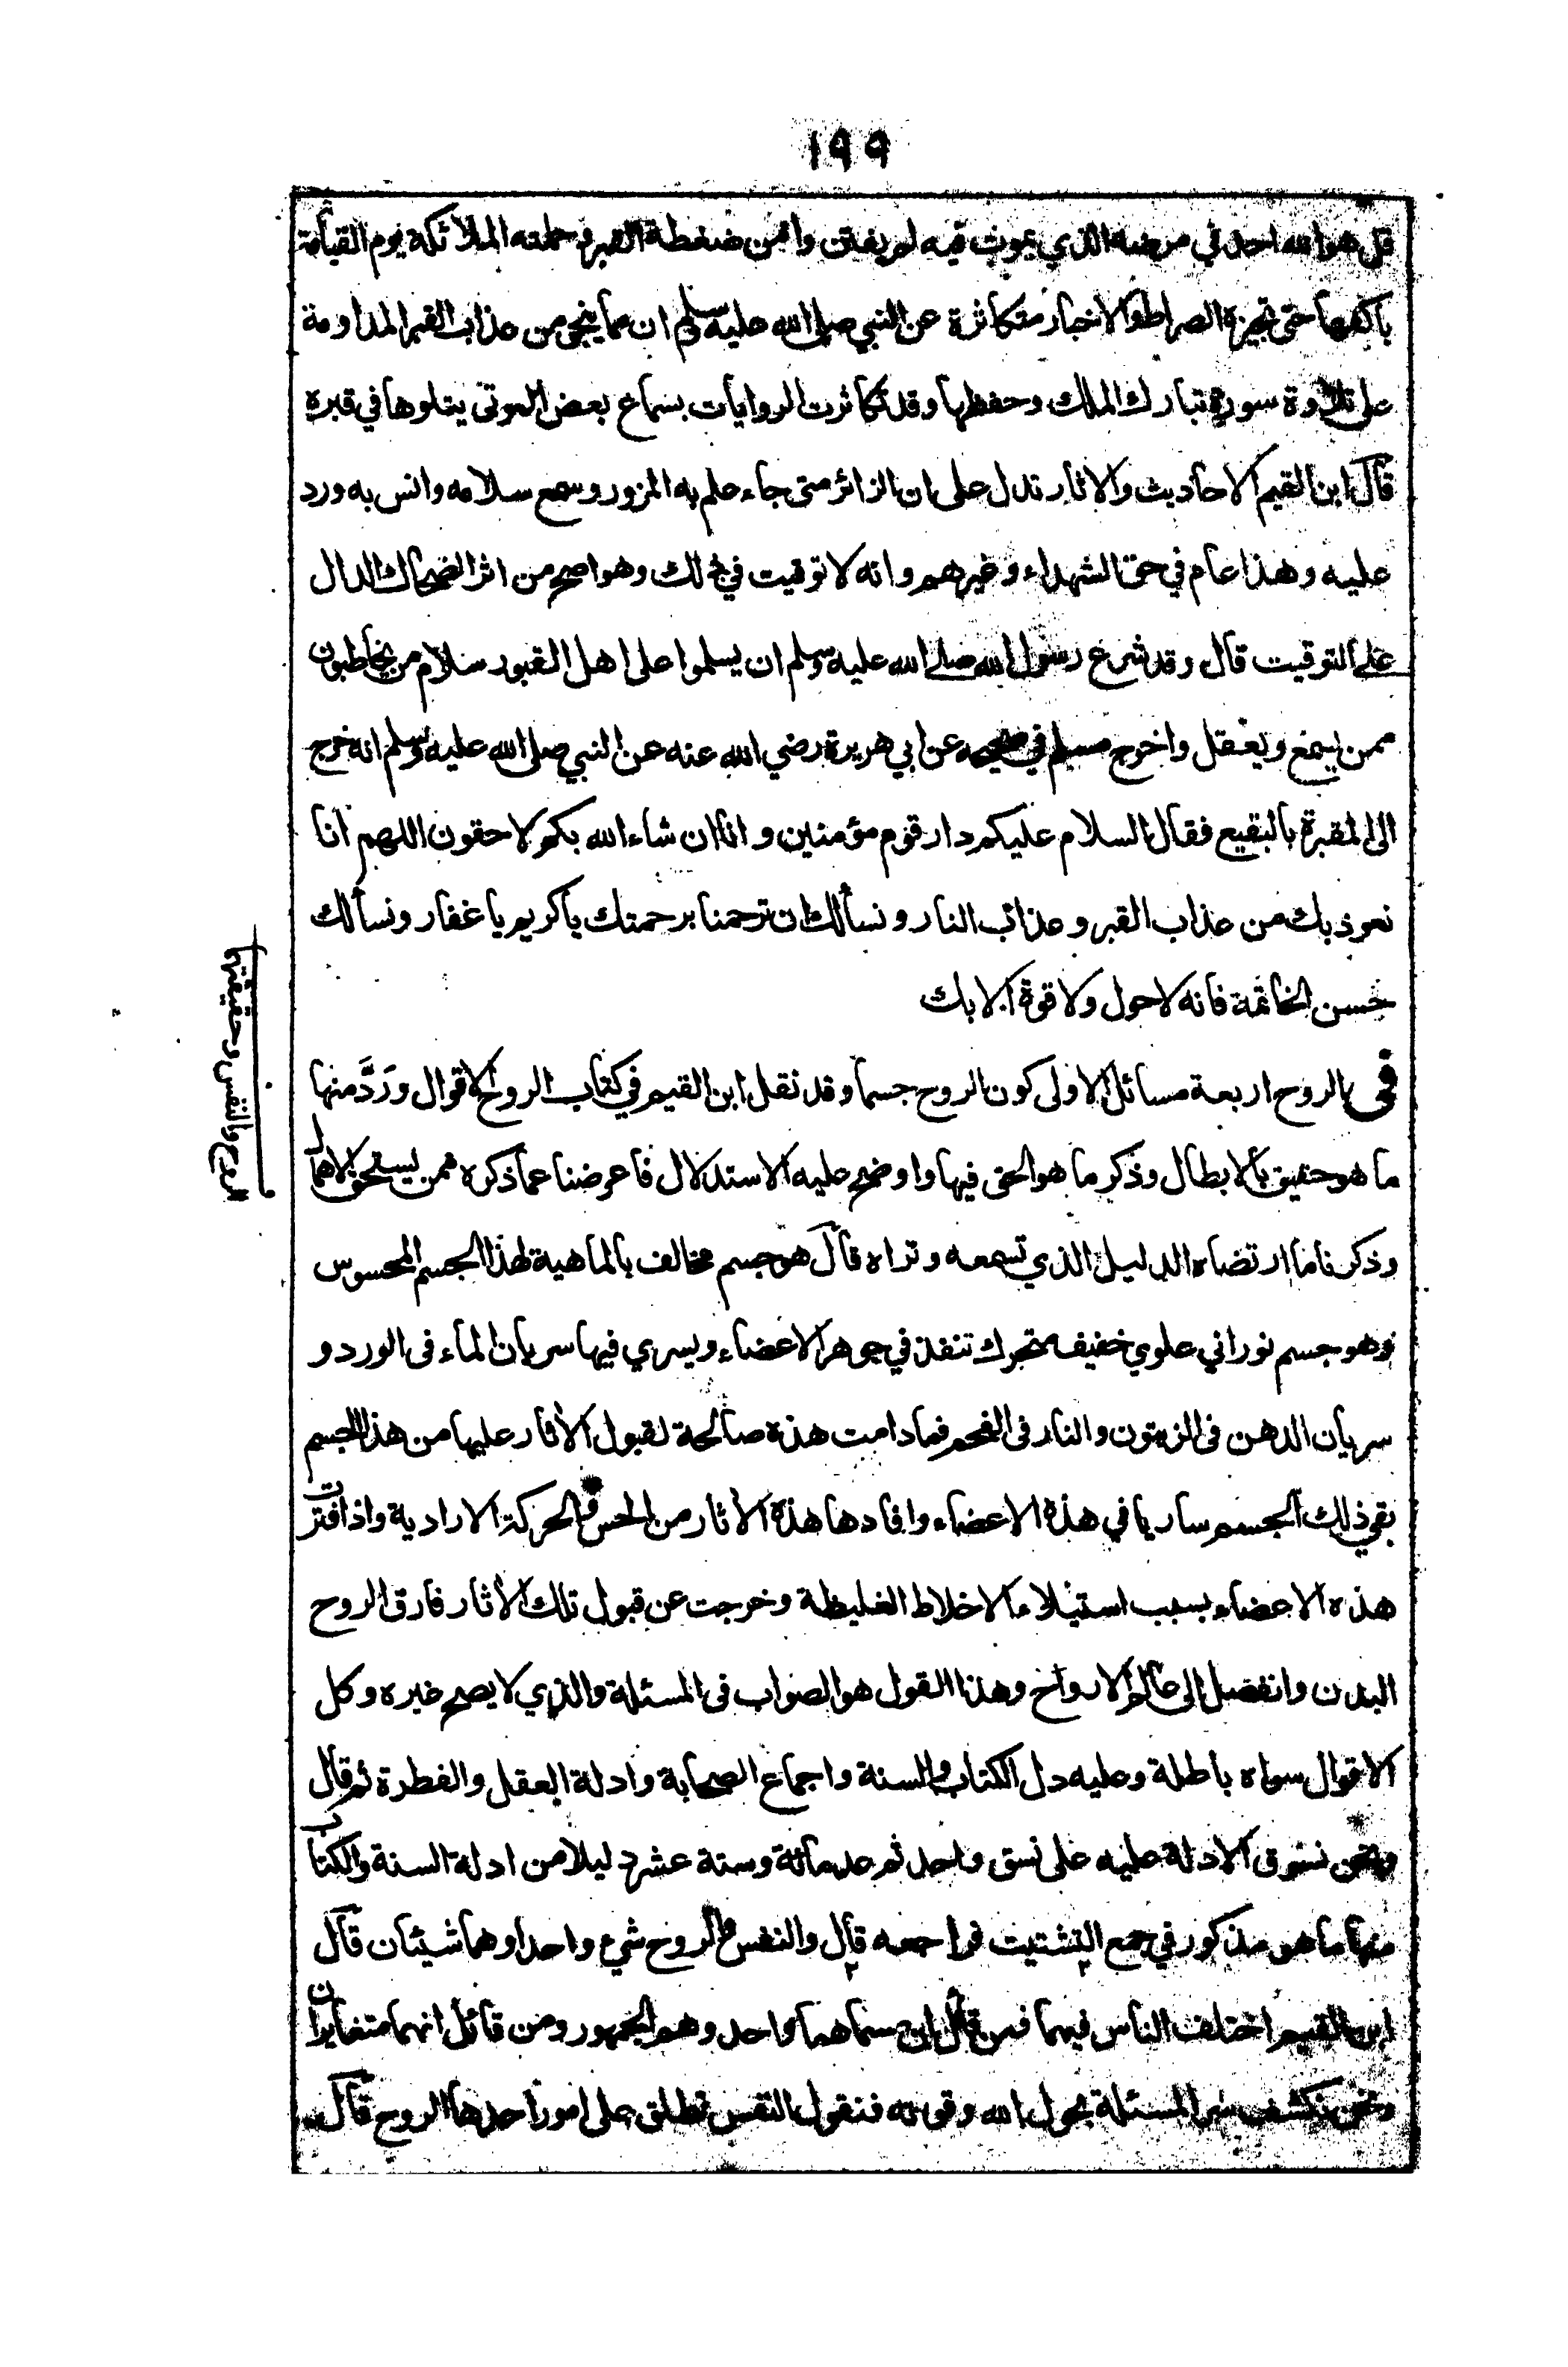 ١٩٩
قل هو الله احد في مرضه الذي يموت فيه لم يفتن وامن ضغطة القبر وحملته الملائكة يوم القيامة
باكفها حتى تجيزه الصراط والاخبار متكاثرة عن النبي صلى الله عليه وسلم ان مما ينجي من عذاب القبر المداومة
على تلاوة سورة تبارك الملك وحفظها وقد تكاثرت الروايات بسماع بعض الموتى يتلوها في قبره
قال ابن القيم الاحاديث والاثار تدل على ان الزائر متى جاء علم به المزور وسمع سلامه وانس به ورد
عليه وهذا عام في حق الشهداء وغيرهم وانه لا توقيت في ذلك وهو اصح من اثر الضحاك الدال
على التوقيت قال وقد شرع رسول الله صلى الله عليه وسلم ان يسلموا على اهل القبور سلام من يخاطبون
ممن يسمع ويعقل واخرج مسلم في صحيحه عن ابي هريرة رضي الله عنه عن النبي صلى الله عليه وسلم انه خرج
الى المقبرة بالبقيع فقال السلام عليكم دار قوم مؤمنين وانا ان شاء الله بكم لاحقون اللهم انا
نعوذ بك من عذاب القبر وعذاب النار ونسألك ان ترحمنا برحمتك يا كريم يا غفار ونسألك
حسن الخاتمة فانه لا حول ولا قوة الا بك
في الروح اربعة مسائل الاولى كون الروح جسما وقد نقل ابن القيم في كتاب الروح الاقوال ورَدَّ منها
ما هو حقيق بالابطال وذكر ما هو الحق فيها واوضح عليه الاستدلال فاعرضنا عما ذكره ممن يستحق الاهمال
وذكرنا ما ارتضاه الدليل الذي تسمعه وتراه قال هو جسم مخالف بالماهية لهذا الجسم المحسوس
وهو جسم نوراني علوي خفيف متحرك تنفذ في جوهر الاعضاء ويسري فيها سريان الماء فى الورد و
سريان الدهن فى الزيتون والنار فى الفحم فما دامت هذه صالحة لقبول الأثار عليها من هذا الجسم
بقي ذلك الجسم ساريا في هذه الاعضاء وافادها هذه الأثار من الحس والحركة الارادية واذا فترت
هذه الاعضاء بسبب استيلاء الاخلاط الغليظة وخرجت عن قبول تلك الأثار فارق الروح
البدن وانفصل الى عالم الارواح وهذا القول هو الصواب فى المسئلة والذي لا يصح غيره وكل
الاقوال سواه باطلة وعليه دل الكتاب والسنة واجماع الصحابة وادلة العقل والفطرة ثم قال
ونحن نسوق الادلة عليه على نسق واحد ثم عد مائة وستة عشر دليلا من ادلة السنة والكتاب
منها ما هو مذكور في جمع التشتيت فراجعه قال والنفس والروح شيء واحد او هما شيئان قال
ابن القيم اختلف الناس فيهما فمن قائل ان مسماهما واحد وهم الجمهور ومن قائل انهما متغايران
ونحن نكشف سر المسئلة بحول الله وقوته فنقول النفس تطلق على امور احدها الروح قال
الروح والنفس وحقيقتها